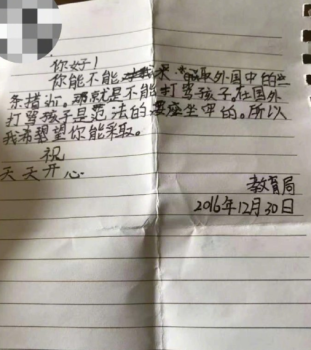 你好！
你能不能采取外国中的一
条措shi。那就是不能打骂孩子。在国外
打骂孩子是范法的要座坐牢的。所以
我希望你能采取。
祝
天天开心
教育局
2016年12月30日